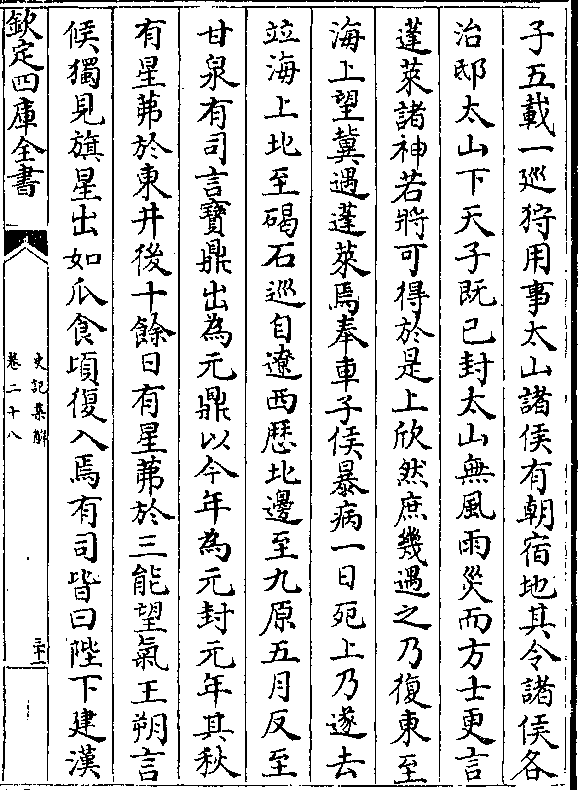 子五載一巡狩用事太山諸侯有朝宿地其令諸侯各
治邸太山下天子既已封太山無風雨災而方士更言
蓬萊諸神若將可得於是上欣然庶幾遇之乃復東至
海上望冀遇蓬萊焉奉車子侯暴病一日死上乃遂去
竝海上北至碣石巡自遼西歷北邊至九原五月反至
甘泉有司言寶鼎出為元鼎以今年為元封元年其秋
有星茀於東井後十餘日有星茀於三能望氣王朔言
候獨見旗星出如瓜食頃復入焉有司皆曰陛下建漢
欽定四庫全書
史記集解
卷二十八
三十二